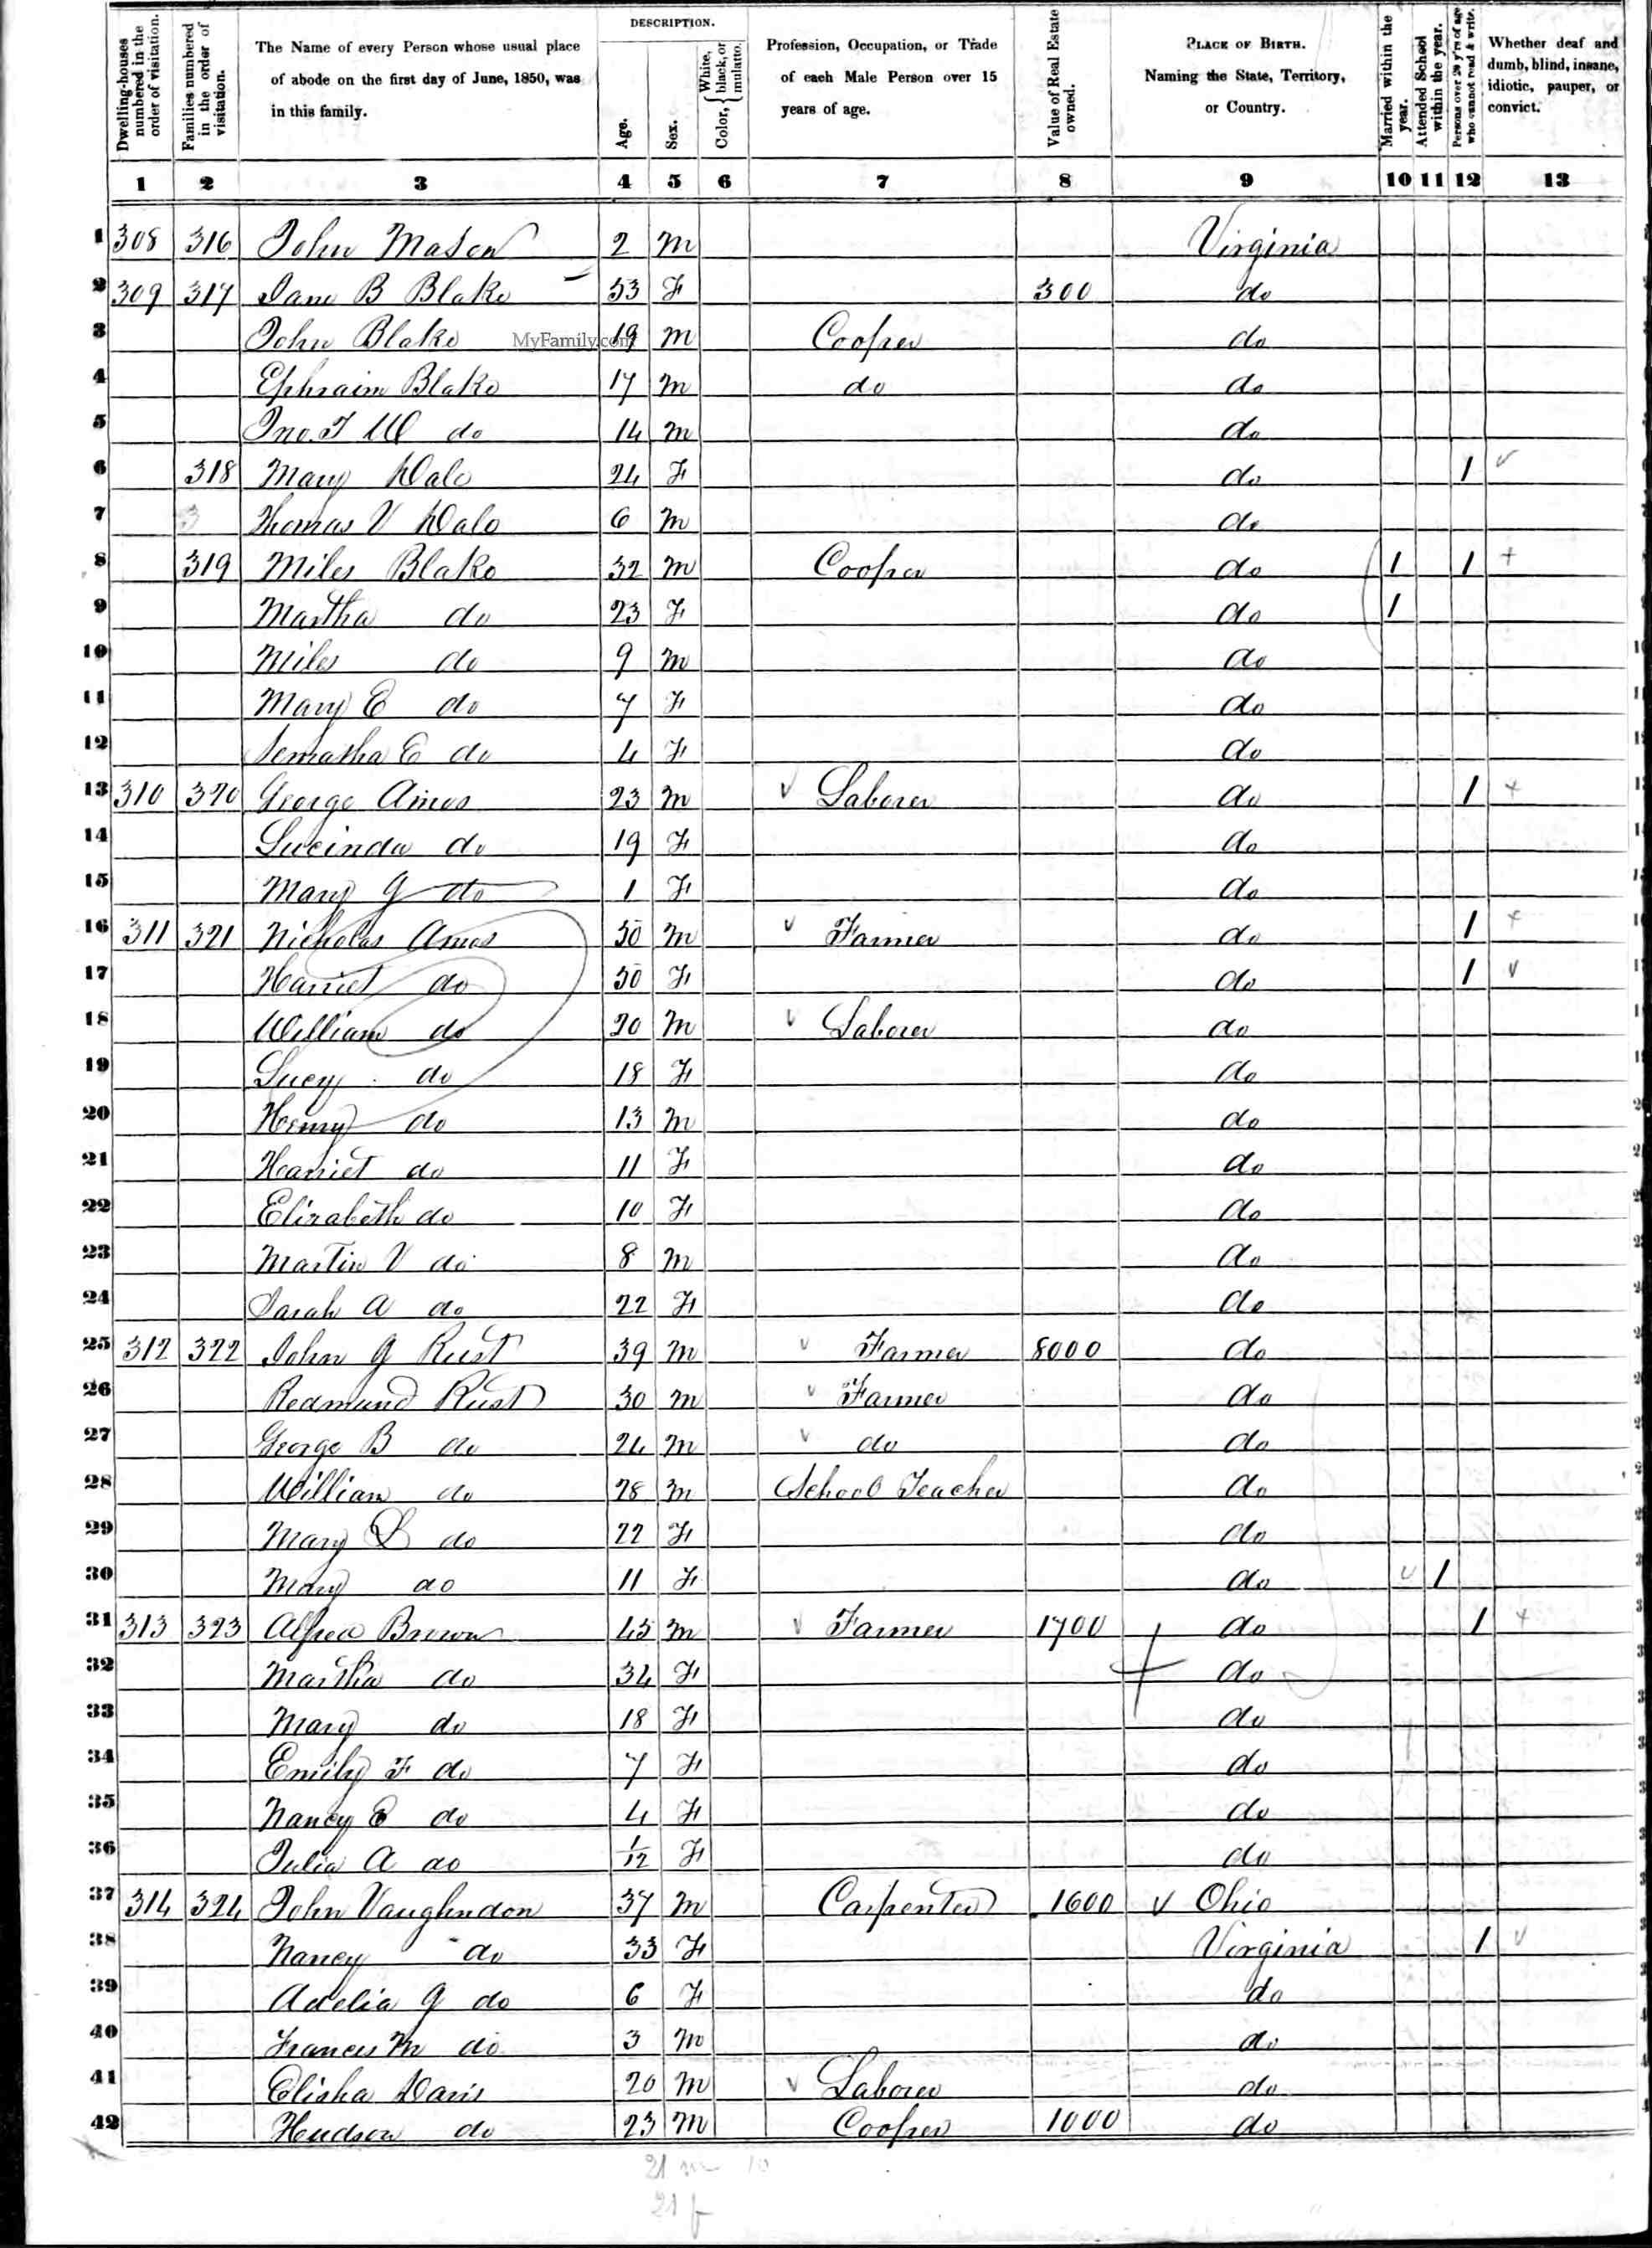 DESCRIPTION.
Dwelling-houses numbered in the order of visitation.
Families numbered in the order of visitation.
The Name of every Person whose usual place of abode on the first day of June, 1850, was in this family.
Age.
Sex.
Color, { White, black, or mulatto.
Profession, Occupation, or Trade of each Male Person over 15 years of age.
Value of Real Estate owned.
PLACE OF BIRTH. Naming the State, Territory, or Country.
Married within the year.
Attended School within the year.
Persons over 20 y'rs of age who cannot read & write.
Whether deaf and dumb, blind, insane, idiotic, pauper, or convict.
1 2 3 4 5 6 7 8 9 10 11 12 13
1 308 316 John Mason 2 M Virginia
2 309 317 Jane B Blake 53 F 300 do
3 John Blake MyFamily.com 19 M Cooper do
4 Ephraim Blake 17 M do do
5 Jno. T W do 14 M do
6 318 Mary Dale 24 F do 1
7 Thomas V Dale 6 M do
8 319 Miles Blake 32 M Cooper do 1 1 +
9 Martha do 23 F do 1
10 Miles do 9 M do
11 Mary E do 7 F do
12 E do 4 F do
13 310 320 George Amos 23 M Laborer do 1 +
14 Lucinda do 19 F do
15 Mary G do 1 F do
16 311 321 Nicholas Amos 50 M Farmer do 1 +
17 Harriet do 50 F do 1
18 William do 20 M Laborer do
19 Lucy do 18 F do
20 Henry do 13 M do
21 Harriet do 11 F do
22 Elizabeth do 10 F do
23 Martin V do 8 M do
24 Sarah A do 22 F do
25 312 322 John G Rust 39 M Farmer 8000 do
26 Redmund Rust 30 M Farmer do
27 George B do 24 M do do
28 William do 28 M School Teacher do
29 Mary L do 22 F do
30 Mary do 11 F do 1
31 313 323 Alfred Brown 45 M Farmer 1700 do 1 +
32 Martha do 34 F do
33 Mary do 18 F do
34 Emily F do 7 F do
35 Nancy E do 4 F do
36 Julia A do 1/12 F do
37 314 324 John Vaughndon 37 M Carpenter 1600 Ohio
38 Nancy do 33 F Virginia 1
39 Adelia G do 6 F do
40 Francis M do 3 M do
41 Elisha Davis 20 M Laborer do
42 Hudson do 23 M Cooper 1000 do
21 m 10
21 f